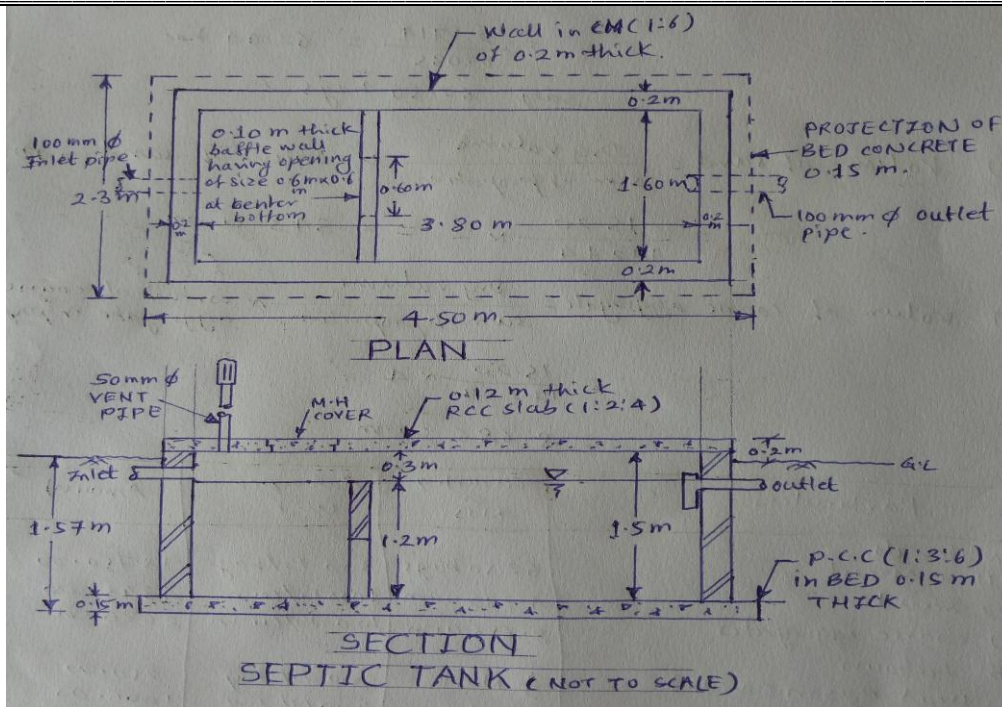 Wall in CM(1:6)
of 0.2m thick.
0.2m
100mm φ
Inlet pipe.
2.3m
0.10 m thick
baffle wall
having opening
of size 0.6m×0.6
m
at benter
bottom
0.60m
1.60m
PROJECTION OF
BED CONCRETE
0.15 m.
0.2
m
3.80 m
0.2
m
100mm φ outlet
pipe.
0.2m
4.50 m
PLAN
50mm φ
VENT
PIPE
M.H
COVER
0.12 m thick
RCC slab (1:2:4)
0.2m
Inlet
0.3m
G.L
outlet
1.57m
1.2m
1.5m
P.C.C (1:3:6)
in BED 0.15 m
THICK
0.15m
SECTION
SEPTIC TANK (NOT TO SCALE)